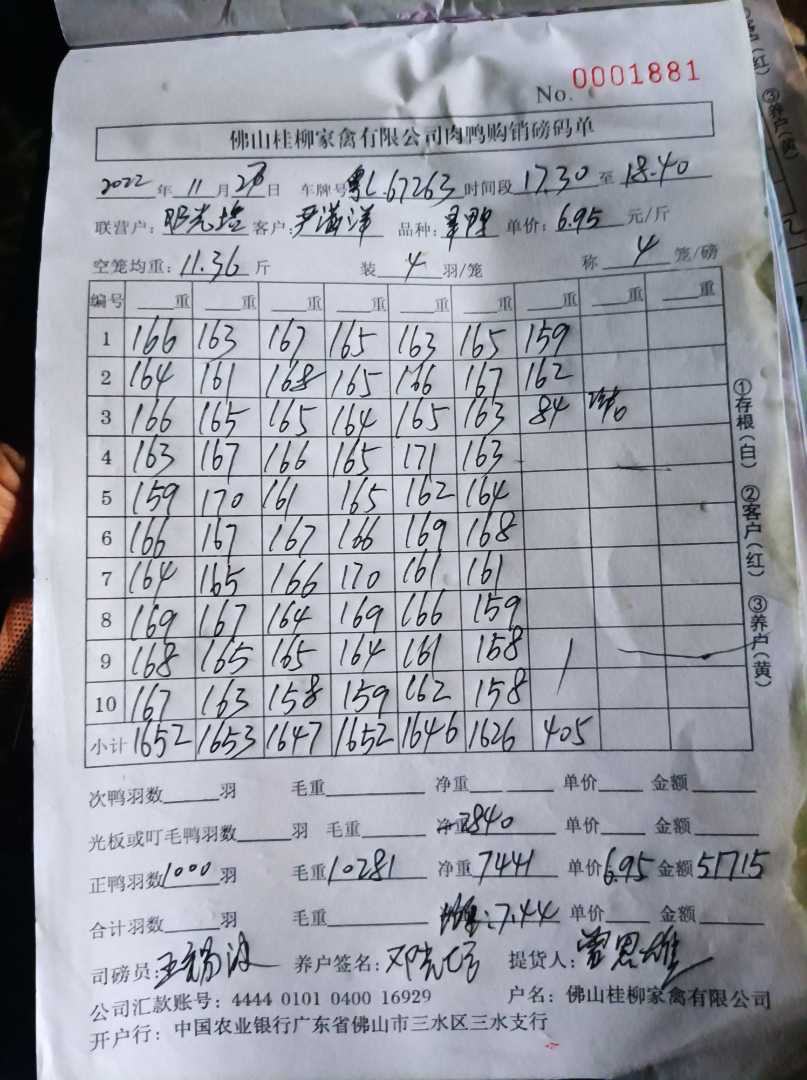 No. 0001881
佛山桂柳家禽有限公司肉鸭购销磅码单
2022 年 11 月 日 车牌号 粤L.67263 时间段 17.30 至 18.40
联营户: 客户: 尹满洋 品种: 单价: 6.95 元/斤
空笼均重: 11.36 斤 装 4 羽/笼 称 4 笼/磅
编号 重 重 重 重 重 重 重 重 重
1 166 163 167 165 163 165 159
2 164 161 168 165 166 167 162
3 166 165 165 164 165 163 84
4 163 167 166 165 171 163
5 159 170 161 165 162 164
6 166 167 167 166 169 168
7 164 165 166 170 161 161
8 169 167 164 169 166 159
9 168 165 165 164 161 158
10 167 163 158 159 162 158
小计 1652 1653 1647 1652 1646 1626 405
次鸭羽数 羽 毛重 净重 单价 金额
光板或叮毛鸭羽数 羽 毛重 净重 2840 单价 金额
正鸭羽数 1000 羽 毛重 10281 净重 7441 单价 6.95 金额 51715
合计羽数 羽 毛重 : 7.44 单价 金额
司磅员: 王锡波 养户签名: 提货人: 曾思雄
公司汇款账号: 4444 0101 0400 16929 户名: 佛山桂柳家禽有限公司
开户行: 中国农业银行广东省佛山市三水区三水支行
①存根(白) ②客户(红) ③养户(黄)